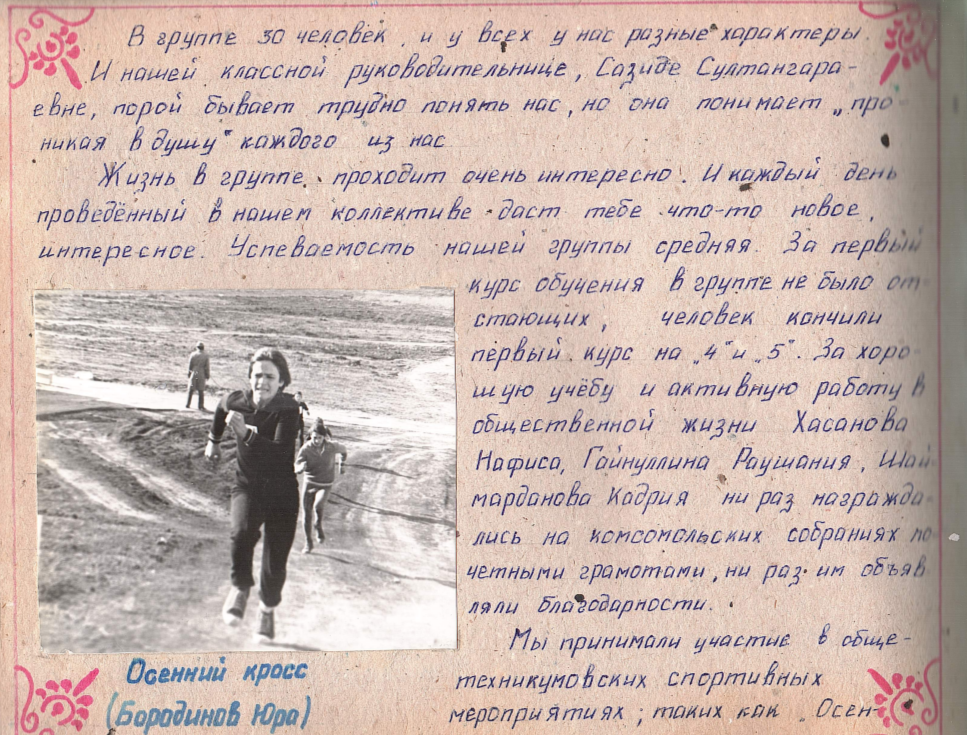 В группе 30 человек, и у всех у нас разные характеры.
И нашей классной руководительнице, Сазиде Султангара-
евне, порой бывает трудно понять нас, но она понимает „про-
никая в душу" каждого из нас
Жизнь в группе проходит очень интересно. И каждый день
проведённый в нашем коллективе даст тебе что-то новое,
интересное. Успеваемость нашей группы средняя. За первый
курс обучения в группе не было от-
стающих, человек кончили
первый курс на „4" и „5". За хоро-
шую учёбу и активную работу в
общественной жизни Хасанова
Нафиса, Гайнуллина Раушания, Шай-
марданова Кадрия ни раз награжда-
лись на комсомольских собраниях по-
четными грамотами, ни раз им объяв-
ляли благодарности.
Мы принимали участие в обще-
техникумовских спортивных
мероприятиях; таких как „Осен-
Осенний кросс
(Бородинов Юра)